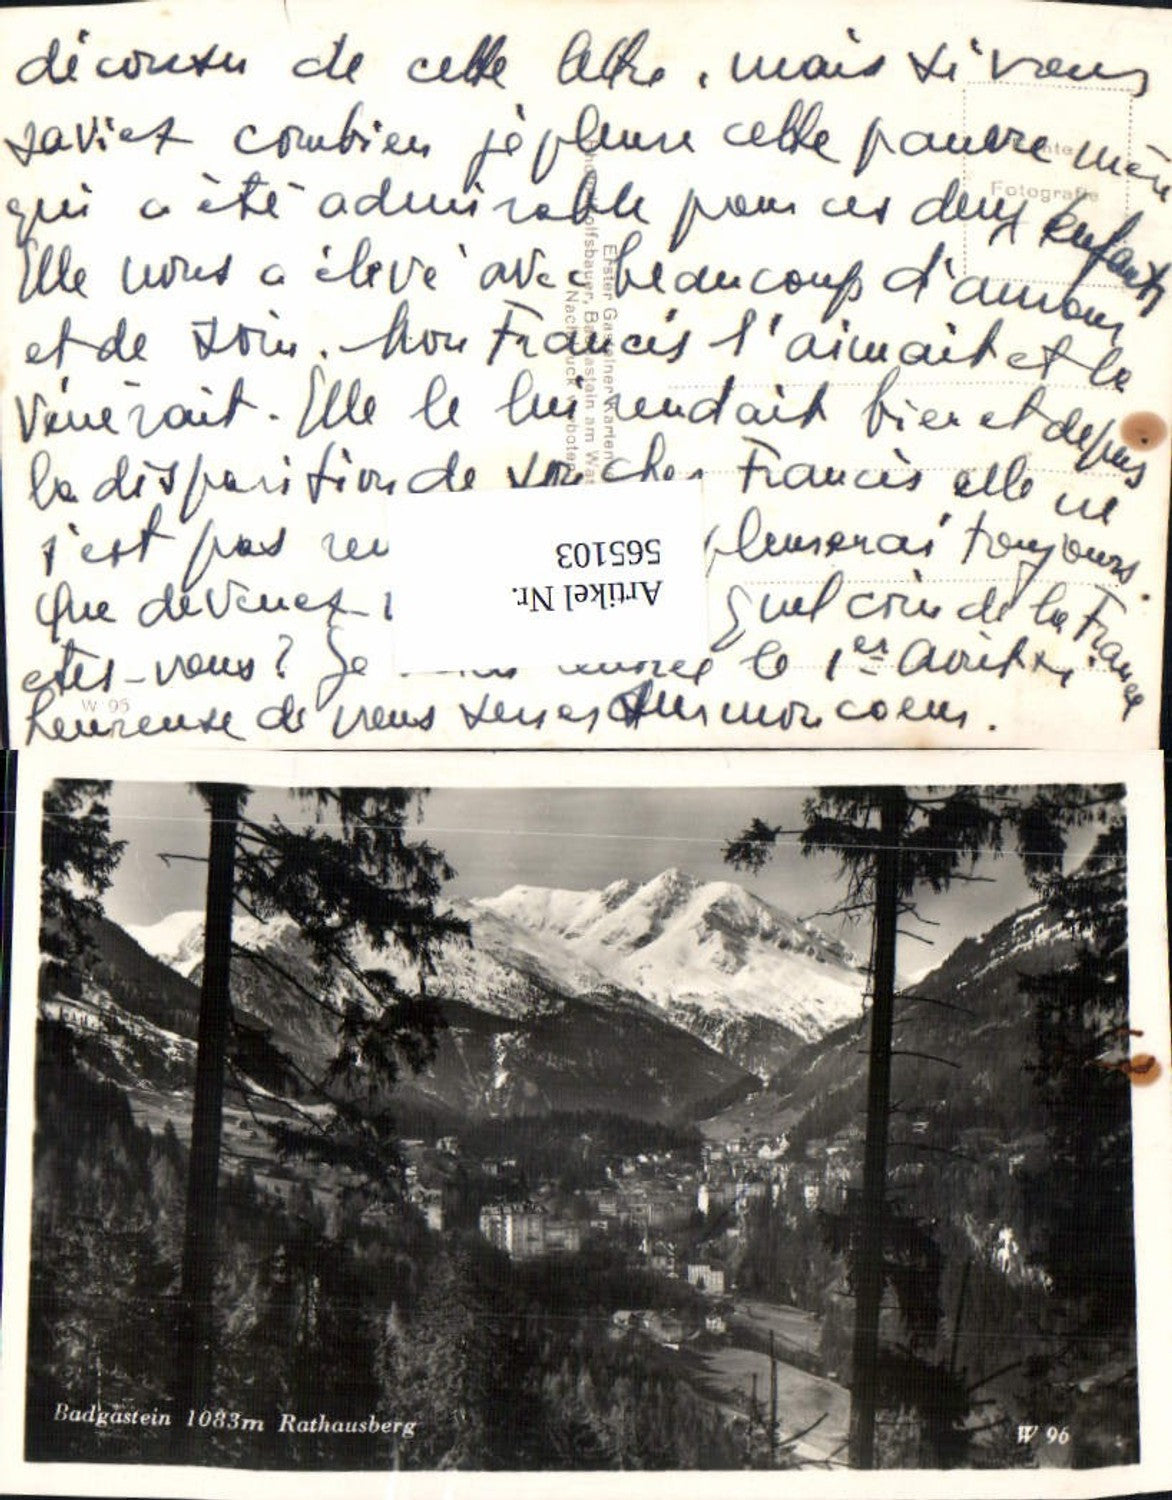 décousu de cette lettre, mais si vous
saviez combien je pleure cette pauvre mère
qui a été admirable pour ces deux enfants
Elle nous a élevé avec beaucoup d'amour
et de soin. Mon Francis l'aimait et la
vénérait. Elle le lui rendait bien et depuis
la disparition de son cher Francis elle ne
s'est pas pleurerai toujours.
Que devenez Quel coin de la France
etes-vous? Je le 1er Avril
heureuse de vous serrer sur mon coeur.
Fotografie
Erster Gasteiner Karten
W 96
Artikel Nr.
565103
Badgastein 1083m Rathausberg
W 96